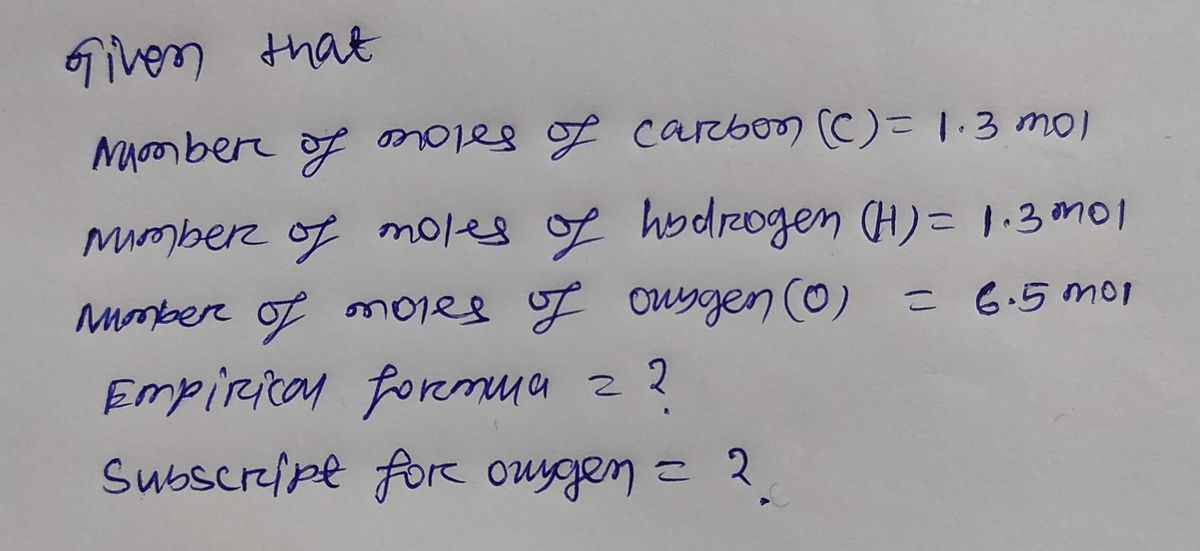 Given that
Number of moles of carbon (C) = 1.3 mol
Number of moles of hydrogen (H) = 1.3 mol
Number of moles of oxygen (O) = 6.5 mol
Empirical formula = ?
Subscript for oxygen = ?